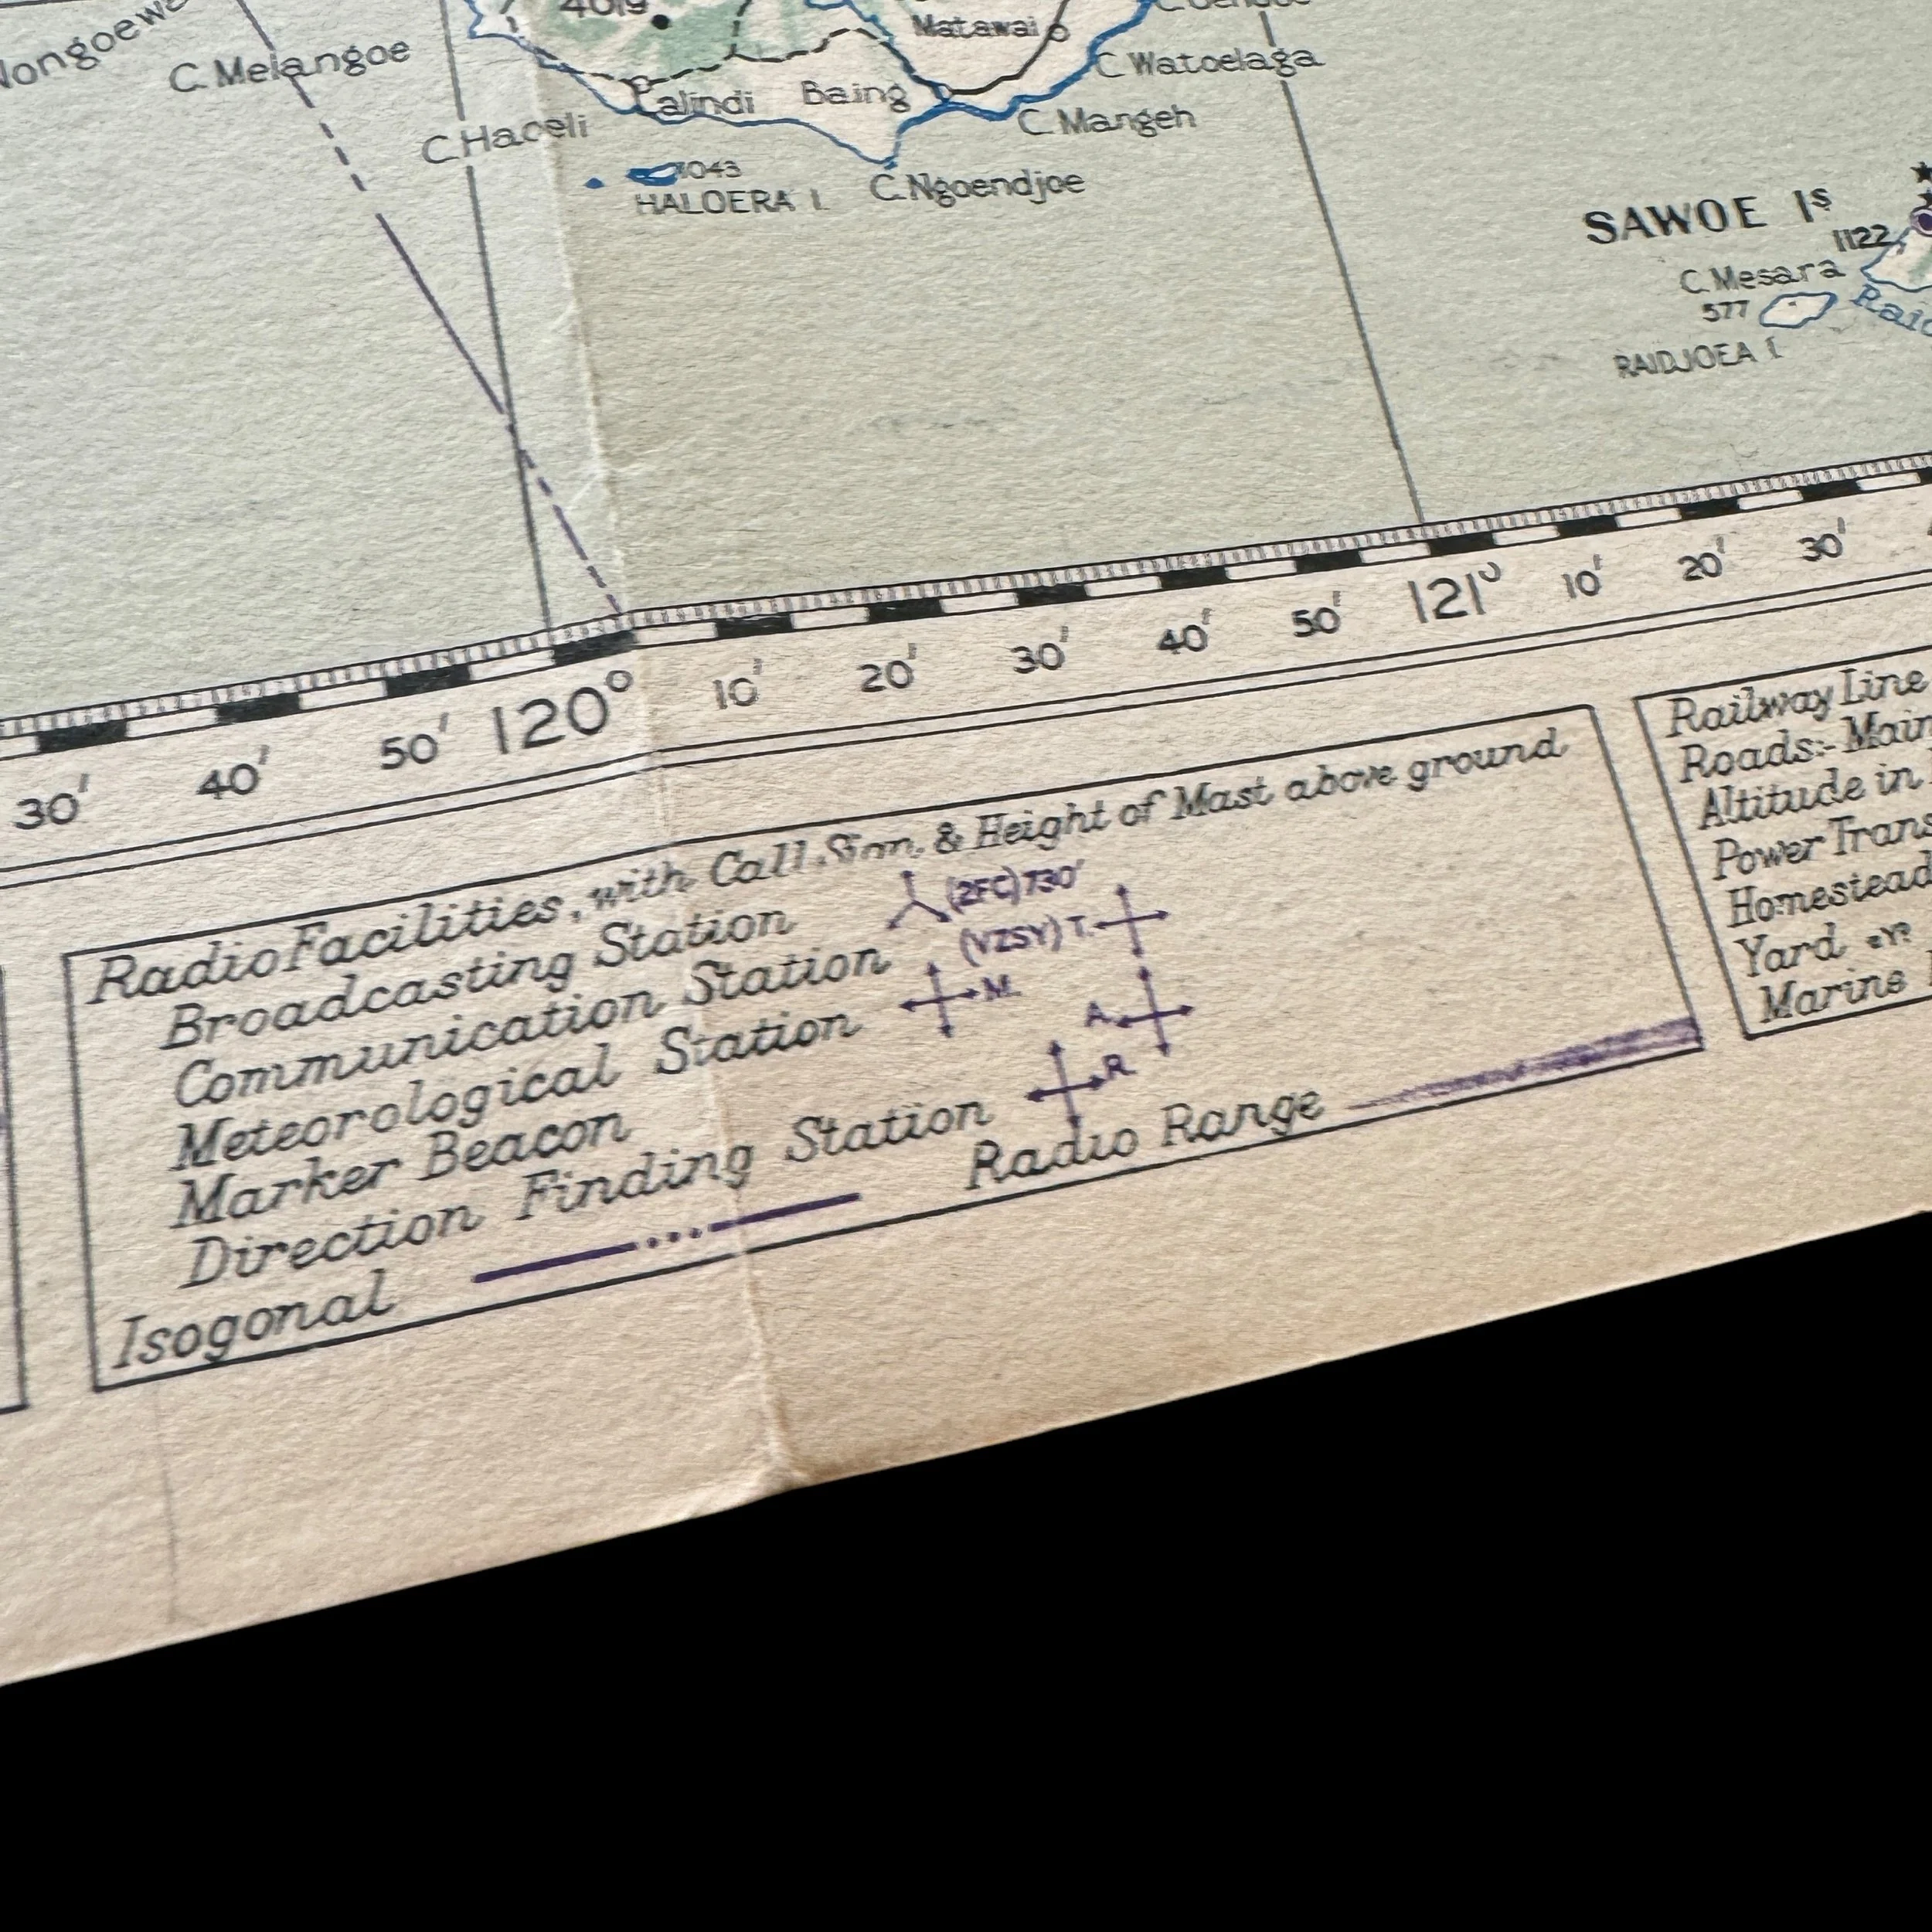 4019
Matawai
C. Melangoe
C. Watoelaga
Lalindi
Baing
C. Mangeh
C. Haoeli
1043
HALOERA I.
C. Ngoendjoe
SAWOE Is
1122
C. Mesara
577
RAIDJOEA I.
30' 40' 50' 120° 10' 20' 30' 40' 50' 121° 10' 20' 30'
Radio Facilities, with Call Sign, & Height of Mast above ground
Broadcasting Station (2FC) 730'
Communication Station (VZSY) T.
Meteorological Station M.
Marker Beacon A.
Direction Finding Station R.
Isogonal
Radio Range
Railway Line
Roads:- Main
Altitude in
Power Trans
Homestead
Yard
Marine